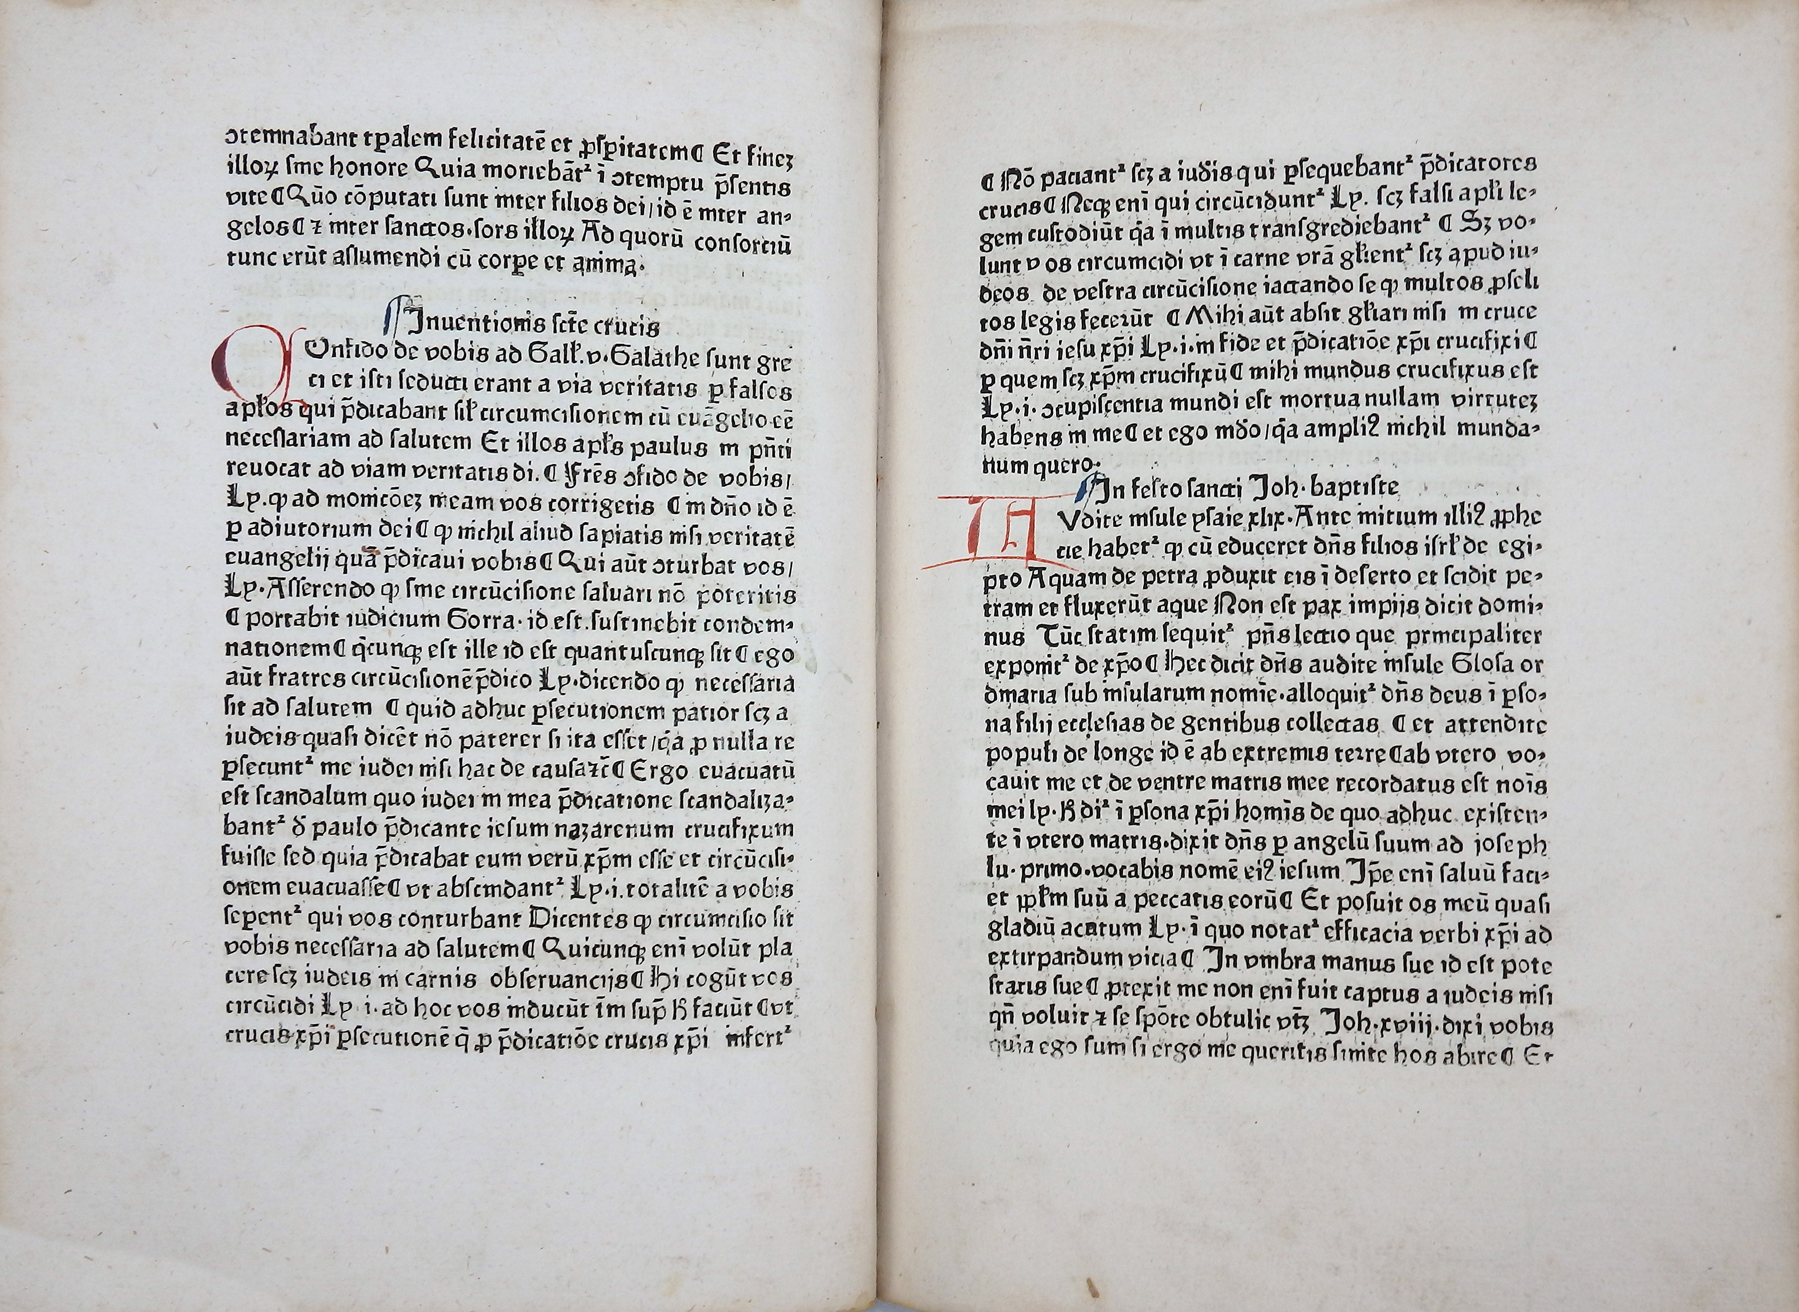 ↄtemnabant tꝑalem felicitatē et ꝓſꝑitatem¶ Et finez
illoꝝ ſine honore Quia moriebāt² ī ↄtemptu p̄ſentis
vite¶Quō cōputati ſunt inter filios dei/id ē inter an⸗
gelos¶ ⁊ inter ſanctos.ſors illoꝝ Ad quorū conſortiū
tunc erūt aſſumendi cū corꝑe et anima.
Inuentionis ſcte crucis
COnfido de vobis ad Gall.v.Galathe ſunt gre
ci et iſti ſeducti erant a via veritatis ꝑ falſos
apl̄os qui p̄dicabant ſil̄ circumciſionem cū euāgelio eē
neceſſariam ad ſalutem Et illos apl̄s paulus in pn̄ti
reuocat ad viam veritatis di.¶ Frēs ↄfido de vobis/
Ly.ꝙ ad monicōez meam vos corrigetis ¶ in dn̄o id ē
ꝑ adiutorium dei¶ ꝙ nichil aliud ſapiatis niſi veritatē
euangelij quā p̄dicaui vobis¶Qui aūt ↄturbat vos/
Ly.Aſſerendo ꝙ ſine circūciſione ſaluari nō poteritis
¶ portabit iudicium Gorra.id eſt.ſuſtinebit condem⸗
nationem¶ q̄cunqꝫ eſt ille id eſt quantuſcunqꝫ ſit¶ ego
aūt fratres circūciſionē p̄dico Ly.dicendo ꝙ neceſſaria
ſit ad ſalutem ¶ quid adhuc ꝑſecutionem patior ſcꝫ a
iudeis quaſi dicēt nō paterer ſi ita eſſet/q̄a ꝓ nulla re
ꝑſecunt² me iudei niſi hac de cauſa⁊c̄¶ Ergo euacuatū
eſt ſcandalum quo iudei in mea p̄dicatione ſcandaliza⸗
bant² ð paulo p̄dicante ieſum nazarenum crucifixum
fuiſſe ſed quia p̄dicabat eum verū xp̄m eſſe et circūciſi⸗
onem euacuaſſe¶ vt abſcindant² Ly.i.totalitē a vobis
ſeꝑent² qui vos conturbant Dicentes ꝙ circumciſio ſit
vobis neceſſaria ad ſalutem¶ Quicunqꝫ enī volūt pla
cere ſcꝫ iudeis in carnis obſeruancijs¶ Hi cogūt vos
circūcidi Ly i.ad hoc vos inducūt īm ſup̄ ꝶ faciūt ¶vt
crucis xp̄i ꝑſecutionē q̄ ꝓ p̄dicatiōe crucis xp̄i infert²
¶ Nō paciant² ſcꝫ a iudīs qui ꝑſequebant² p̄dicatores
crucis¶ Neqꝫ enī qui circūcidunt² Ly. ſcꝫ falſi apl̄i le⸗
gem cuſtodiūt q̄a ī multis tranſgrediebant² ¶ Sꝫ vo⸗
lunt vos circumcidi vt ī carne vrā gl̄ient² ſcꝫ apud iu⸗
deos de veſtra circūciſione iactando ſe ꝙ multos ꝓſeli
tos legis fecerūt ¶ Mihi aūt abſit gl̄iari niſi in cruce
dn̄i n̄ri ieſu xp̄i Ly.i.in fide et p̄dicatiōe xp̄i crucifixi¶
ꝑ quem ſcꝫ xp̄m crucifixū¶ mihi mundus crucifixus eſt
Ly.i.ↄcupiſcentia mundi eſt mortua nullam virtutez
habens in me¶ et ego mdo/q̄a ampliꝰ nichil munda⸗
num quero.
In feſto ſancti Joh.baptiſte
AVdite inſule yſaie xlix.Ante initium illiꝰ ꝓphe
tie habet² ꝙ cū educeret dn̄s filios iſrl̄ de egi⸗
pto Aquam de petra ꝓduxit eis ī deſerto et ſcidit pe⸗
tram et fluxerūt aque Non eſt pax impijs dicit domi⸗
nus Tūc ſtatim ſequit² pn̄s lectio que principaliter
exponit² de xp̄o¶ Hec dicit dn̄s audite inſule Gloſa or
dinaria ſub inſularum nomīe.alloquit² dn̄s deus ī ꝑſo⸗
na filij eccleſias de gentibus collectas ¶ et attendite
populi de longe id ē ab extremis terre¶ab vtero vo⸗
cauit me et de ventre matris mee recordatus eſt noīs
mei ly.ꝶ di² ī ꝑſona xp̄i homīs de quo adhuc exiſten⸗
te ī vtero matris.dixit dn̄s ꝑ angelū ſuum ad joſeph
lu.primo.vocabis nomē eiꝰ ieſum Ip̄e enī ſaluū faci⸗
et pp̄l̄m ſuū a peccatis eorū¶ Et poſuit os meū quaſi
gladiū acutum Ly.ī quo notat² efficacia verbi xp̄i ad
extirpandum vicia¶ In vmbra manus ſue id eſt pote
ſtatis ſue¶ ꝓtexit me non enī fuit captus a iudeis niſi
qn̄ voluit ⁊ ſe ſpōte obtulit vtꝫ Joh.xviij.dixi vobis
quia ego ſum ſi ergo me queritis ſinite hos abire¶ Et